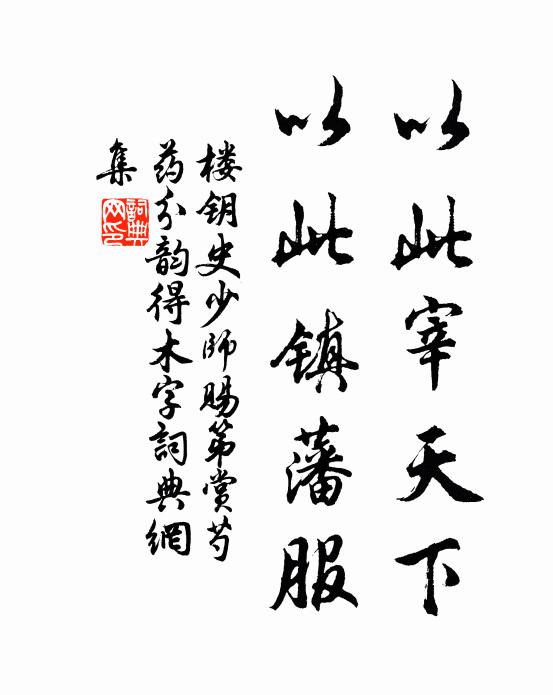 以此宰天下
以此镇藩服
楼钥史少师赐第赏芍
药分韵得木字詞典網
集
詞典網印